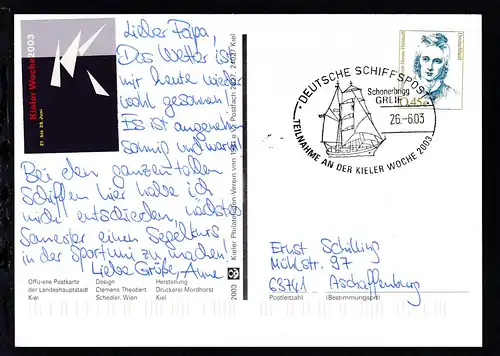 Kieler Woche 2003
21. bis 29. Juni
Lieber Papa,
Das Wetter ist
mir heute wieder
wohl gesonnen!
Es ist angenehm
sonnig und warm!
Bei den ganzen tollen
Schiffen hier habe ich
mich entschieden nächstes
Semester einen Segelkurs
in der Sportuni zu machen!
Liebe Grüße, Anne
Offizielle Postkarte
der Landeshauptstadt
Kiel
Design
Clemens Theobert
Schedler, Wien
Herstellung
Druckerei Mordhorst
Kiel
Kieler Philatelisten-Verein von Postfach 24021 Kiel
2003
Deutschland
0,45€
DEUTSCHE SCHIFFSPOST
Schonerbrigg
GREIF
26.-6.03
TEILNAHME AN DER KIELER WOCHE 2003
Ernst Schilling
Mühlstr. 97
63741 Aschaffenburg
Postleitzahl (Bestimmungsort)